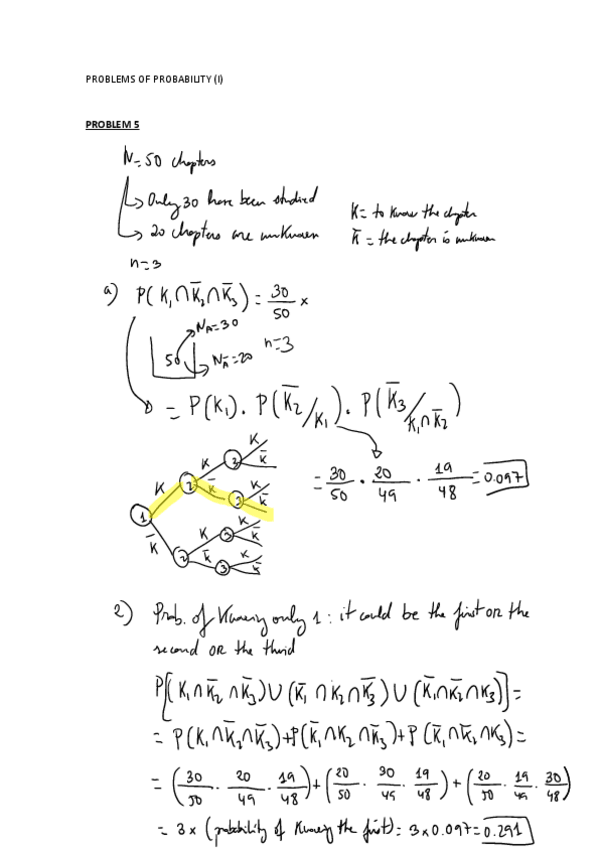 PROBLEMS OF PROBABILITY (I)
PROBLEM 5
N=50 chapters
↳ Only 30 have been studied
↳ 20 chapters are unknown
K= to know the chapter
K̅ = the chapter is unknown
n=3
a) P(K₁∩K̅₂∩K̅₃) = 30/50 ×
50
N_A=30
N_A̅=20
n=3
= P(K₁). P(K̅₂/K₁). P(K̅₃/K₁∩K̅₂)
= 30/50 · 20/49 · 19/48 = 0.097
1 K 2 K 3 K K̅
K̅ 3 K K̅
K̅ 2 K 3 K K̅
K̅ 3 K K̅
2) Prob. of Knowing only 1 : it could be the first OR the
second OR the third
P[(K₁∩K̅₂∩K̅₃)∪(K̅₁∩K₂∩K̅₃)∪(K̅₁∩K̅₂∩K₃)]=
= P(K₁∩K̅₂∩K̅₃)+P(K̅₁∩K₂∩K̅₃)+P(K̅₁∩K̅₂∩K₃)=
= (30/50 · 20/49 · 19/48)+(20/50 · 30/49 · 19/48)+(20/50 · 19/49 · 30/48)
= 3 × (probability of Knowing the first) = 3×0.097=0.291